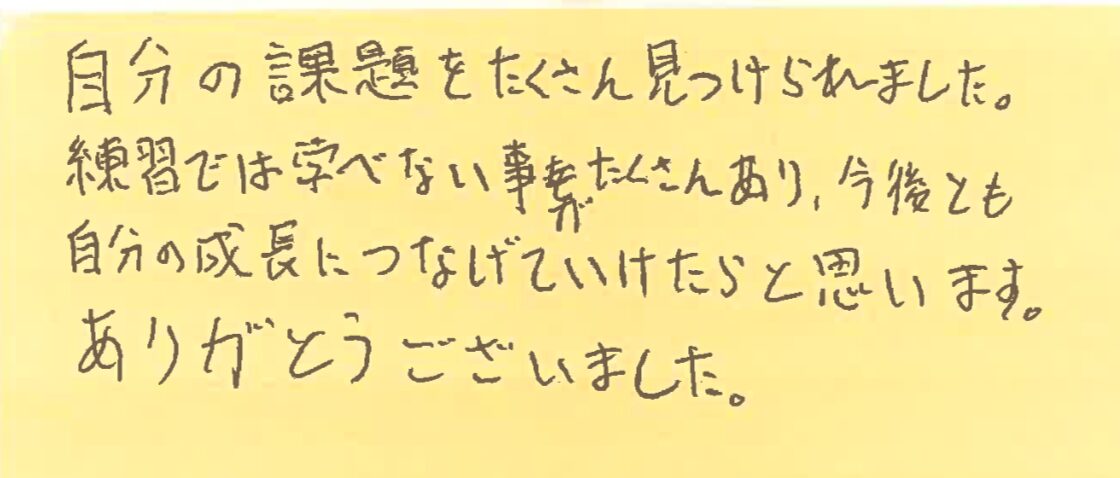 自分の課題をたくさん見つけられました。
練習では学べない事がたくさんあり、今後とも
自分の成長につなげていけたらと思います。
ありがとうございました。